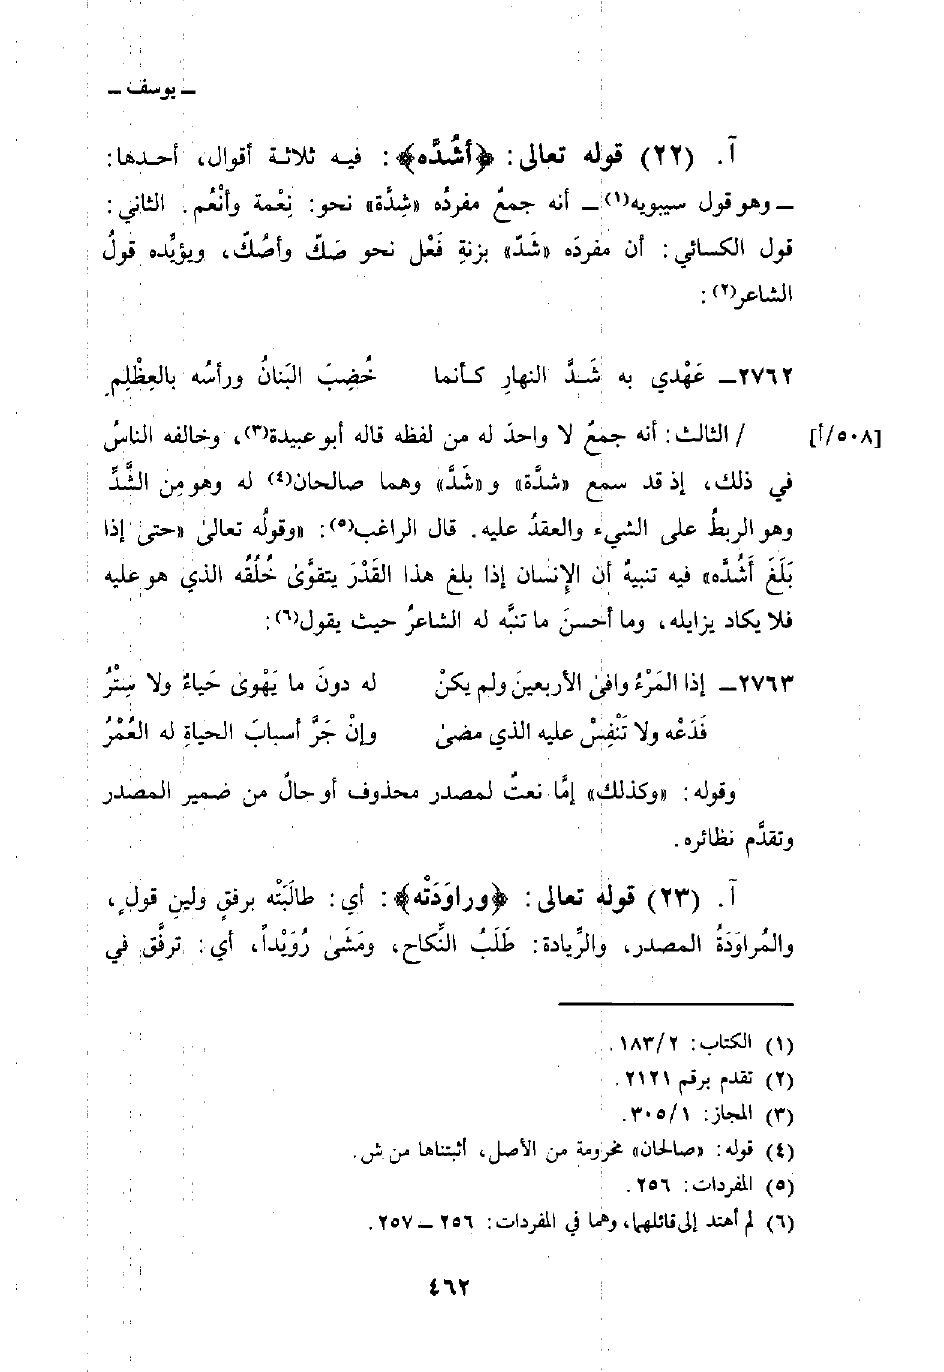 ـ يوسف ـ
آ. (٢٢) قوله تعالى: ﴿أَشُدَّه﴾: فيه ثلاثة أقوال، أحدها:
ـ وهو قول سيبويه(١) ـ أنه جمعٌ مفردُه «شِدَّة» نحو: نِعْمة وأَنْعُم. الثاني:
قول الكسائي: أن مفردَه «شَدّ» بزنةِ فَعْل نحو صَكّ وأَصُكّ، ويؤيِّده قولُ
الشاعر(٢):
٢٧٦٢ـ عَهْدي به شَدَّ النهارِ كأنما خُضِبَ البَنانُ ورأسُه بالعِظْلِمِ
[٥٠٨/أ] / الثالث: أنه جمعٌ لا واحدَ له من لفظه قاله أبو عبيدة(٣)، وخالفه الناسُ
في ذلك، إذ قد سمع «شدَّة» و«شَدَّ» وهما صالحان(٤) له وهو مِن الشَّدِّ
وهو الربطُ على الشيء والعقدُ عليه. قال الراغب(٥): «وقولُه تعالىٰ «حتى إذا
بَلَغَ أَشُدَّه» فيه تنبيهٌ أن الإِنسان إذا بلغ هذا القَدْرَ يتقوَّىٰ خُلُقه الذي هو عليه
فلا يكاد يزايله، وما أحسنَ ما تنبَّه له الشاعرُ حيث يقول(٦):
٢٧٦٣ـ إذا المَرْءُ وافىٰ الأربعينَ ولم يكنْ له دونَ ما يَهْوىٰ حَياءٌ ولا سِتْرُ
فَدَعْه ولا تَنْفِسْ عليه الذي مضىٰ وإنْ جَرَّ أسبابَ الحياةِ له العُمْرُ
وقوله: «وكذلك» إمَّا نعتٌ لمصدر محذوف أو حالٌ من ضمير المصدر
وتقدَّم نظائره.
آ. (٢٣) قوله تعالى: ﴿وراوَدَتْه﴾: أي: طالَبَتْه برفقٍ ولينِ قولٍ،
والمُراوَدَةُ المصدر، والرِّيادة: طَلَبُ النِّكاح، ومَشَىٰ رُوَيْداً، أي: ترفَّق في
(١) الكتاب: ١٨٣/٢.
(٢) تقدم برقم ٢١٢١.
(٣) المجاز: ٣٠٥/١.
(٤) قوله: «صالحان» مخرومة من الأصل، أثبتناها من ش.
(٥) المفردات: ٢٥٦.
(٦) لم أهتد إلى قائلهما، وهما في المفردات: ٢٥٦ ـ ٢٥٧.
٤٦٢